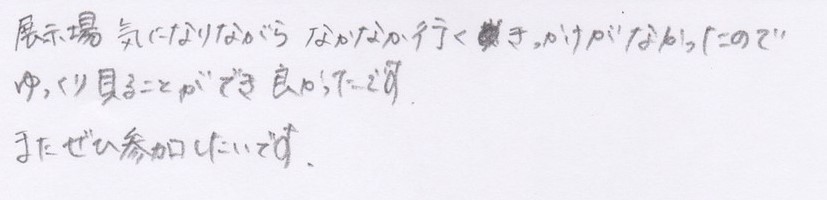 展示場 気になりながら なかなか行くきっかけがなかったので
ゆっくり見ることができ良かったです
またぜひ参加したいです.